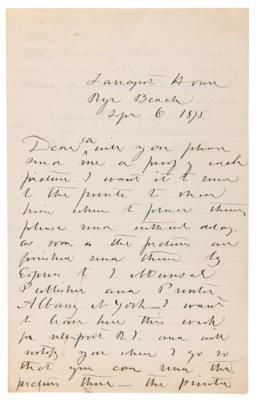 Rye Beach
6 1875
Dear Sir will you please
send me a proof of each
picture I want it to send
to the printer to show
him where to place them,
please send without delay,
as soon as the pictures are
finished send them by
Express to J Munsel
Publisher and Printer
Albany N York – I want
to leave here this week
for Newport R.I. and will
notify you where I go so
that you can send the
pictures there – the printer